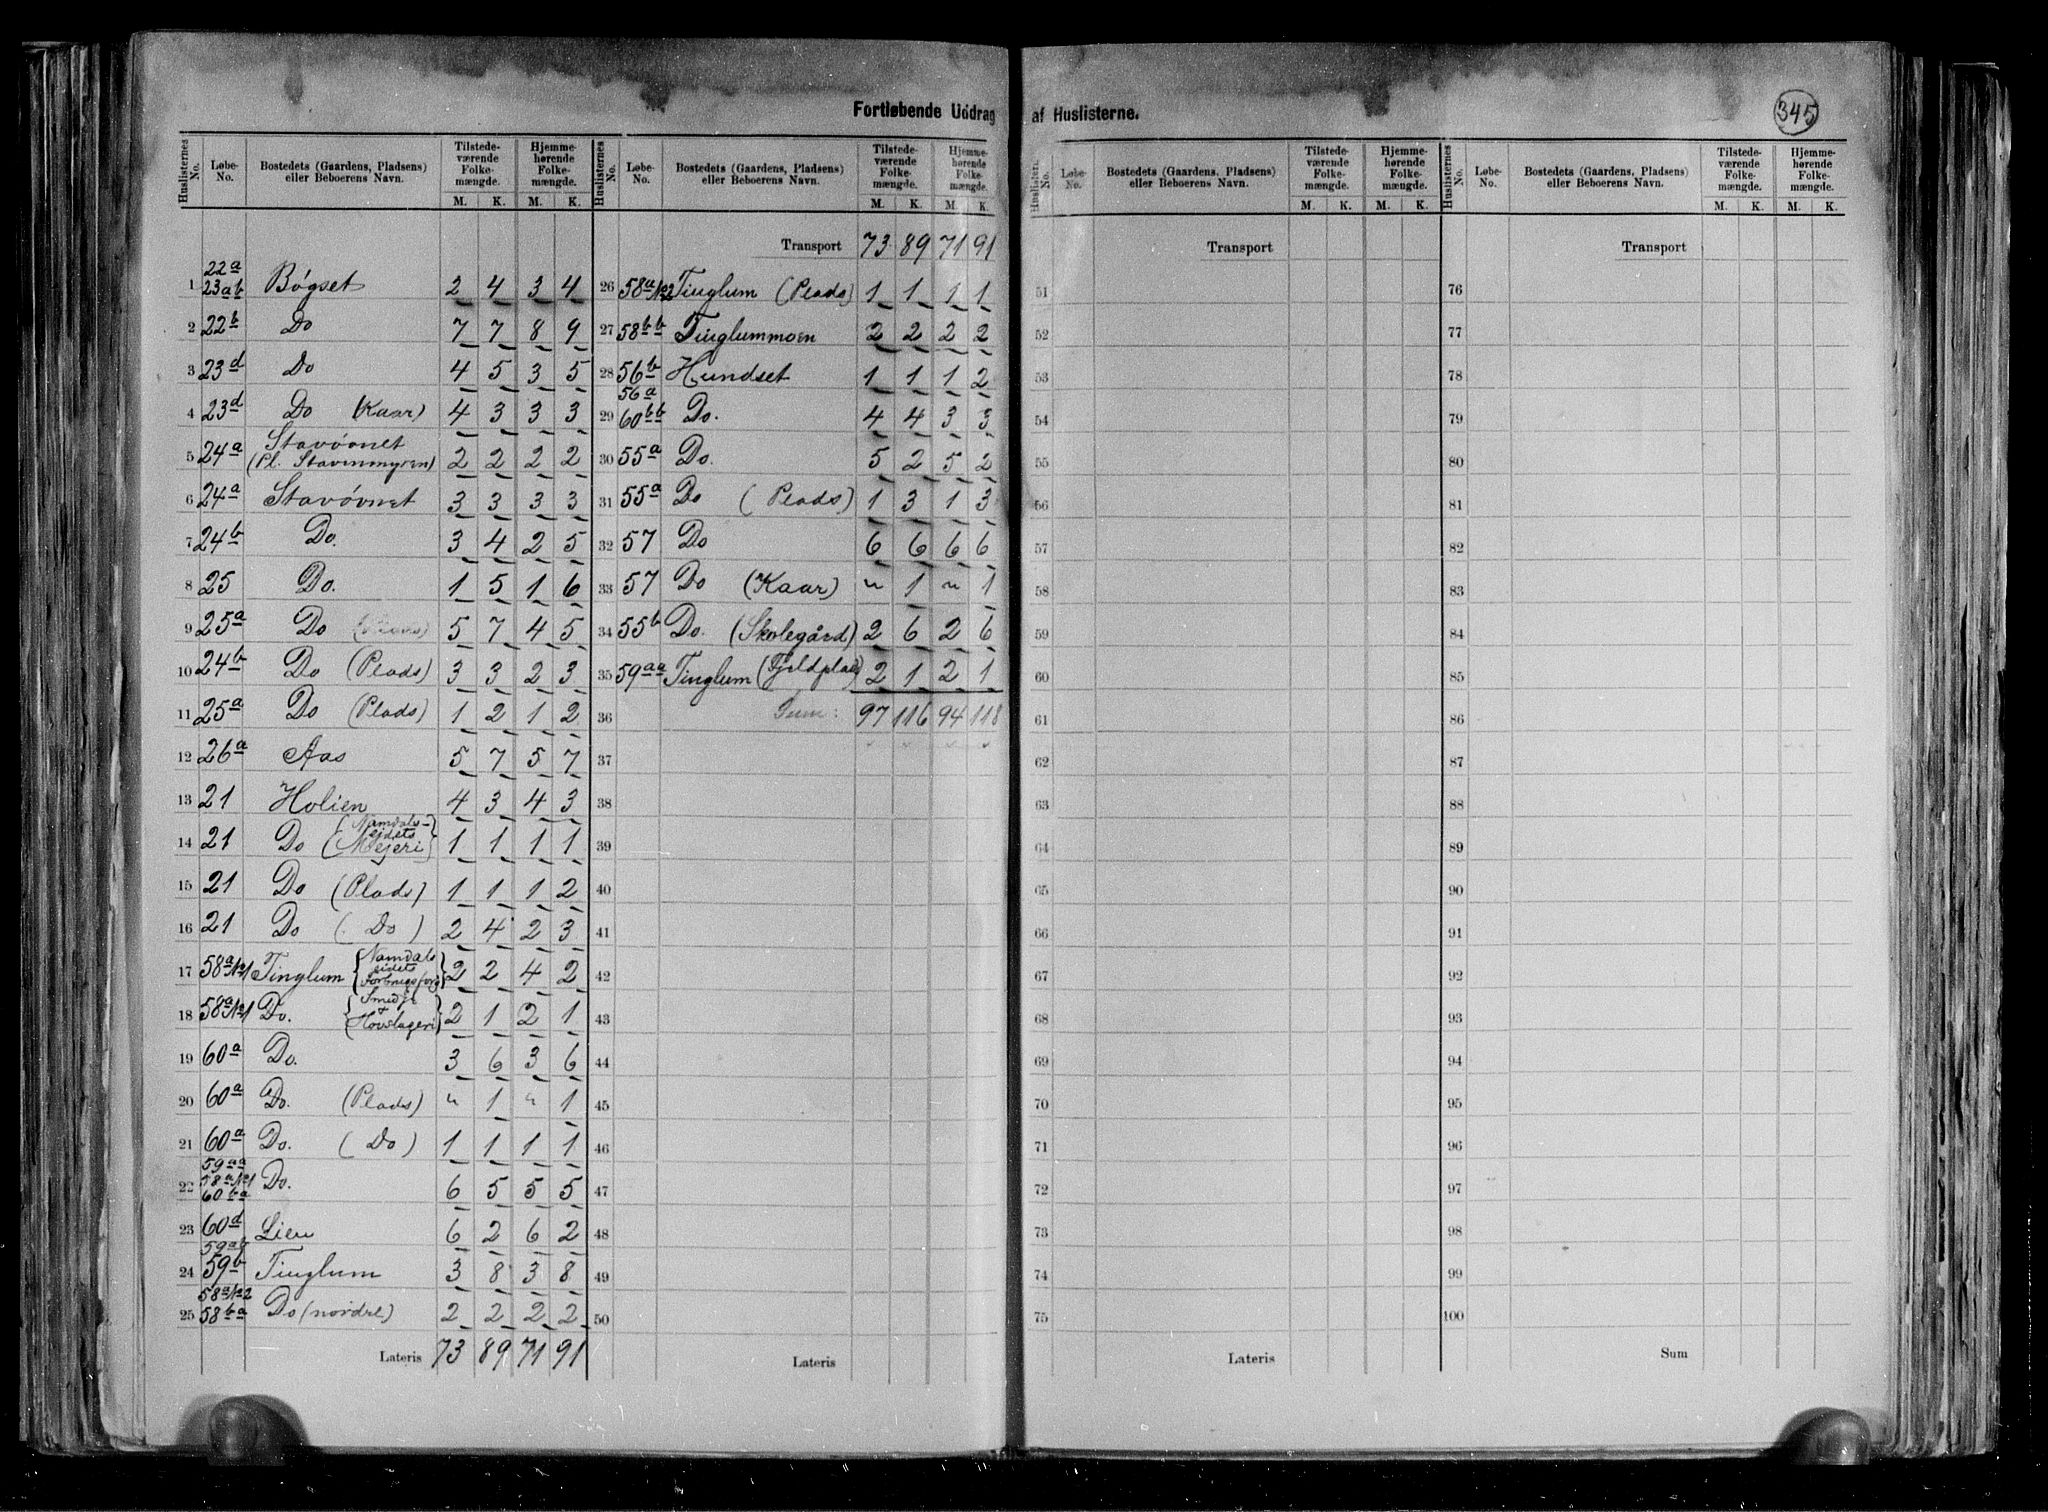 Fortløbende Uddrag af Huslisterne.
345
Huslisternes No. | Løbe-No. | Bostedets (Gaardens, Pladsens) eller Beboerens Navn. | Tilstedeværende Folkemængde. M. K. | Hjemmehørende Folkemængde. M. K.
1 | 22a 23ab | Bøgset | 2 | 4 | 3 | 4
2 | 22b | Do | 7 | 7 | 8 | 9
3 | 23d | Do | 4 | 5 | 3 | 5
4 | 23d | Do (Kaar) | 4 | 3 | 3 | 3
5 | 24a | Stavøvnet (Pl. Stavinmyren) | 2 | 2 | 2 | 2
6 | 24a | Stavøvnet | 3 | 3 | 3 | 3
7 | 24b | Do. | 3 | 4 | 2 | 5
8 | 25 | Do. | 1 | 5 | 1 | 6
9 | 25a | Do (Plads) | 5 | 7 | 4 | 5
10 | 24b | Do (Plads) | 3 | 3 | 2 | 3
11 | 25a | Do (Plads) | 1 | 2 | 1 | 2
12 | 26a | Aas | 5 | 7 | 5 | 7
13 | 21 | Holien | 4 | 3 | 4 | 3
14 | 21 | Do (Namdalseidets Mejeri) | 1 | 1 | 1 | 1
15 | 21 | Do (Plads) | 1 | 1 | 1 | 2
16 | 21 | Do (Do) | 2 | 4 | 2 | 3
17 | 58a/1 | Tinglum {Namdalseidets Forbrugsforg} | 2 | 2 | 4 | 2
18 | 58a/1 | Do. {Smedje + Hovslageri} | 2 | 1 | 2 | 1
19 | 60a | Do. | 3 | 6 | 3 | 6
20 | 60a | Do. (Plads) | " | 1 | " | 1
21 | 60a | Do. (Do) | 1 | 1 | 1 | 1
22 | 59aa 58a/1 60ba | Do. | 6 | 5 | 5 | 5
23 | 60d | Lien | 6 | 2 | 6 | 2
24 | 59ab 59b | Tinglum | 3 | 8 | 3 | 8
25 | 58a/2 58ba | Do (nordre) | 2 | 2 | 2 | 2
Lateris | 73 | 89 | 71 | 91
Huslisternes No. | Løbe-No. | Bostedets (Gaardens, Pladsens) eller Beboerens Navn. | Tilstedeværende Folkemængde. M. K. | Hjemmehørende Folkemængde. M. K.
Transport | 73 | 89 | 71 | 91
26 | 58a/2 | Tinglum (Plads) | 1 | 1 | 1 | 1
27 | 58bb | Tinglummoen | 2 | 2 | 2 | 2
28 | 56b | Hundset | 1 | 1 | 1 | 2
29 | 56a 60bb | Do. | 4 | 4 | 3 | 3
30 | 55a | Do. | 5 | 2 | 5 | 2
31 | 55a | Do (Plads) | 1 | 3 | 1 | 3
32 | 57 | Do | 6 | 6 | 6 | 6
33 | 57 | Do (Kaar) | " | 1 | " | 1
34 | 55b | Do. (Skolegård) | 2 | 6 | 2 | 6
35 | 59aa | Tinglum (Fjeldplads) | 2 | 1 | 2 | 1
36 | Sum: | 97 | 116 | 94 | 118
37
38
39
40
41
42
43
44
45
46
47
48
49
50
Lateris
Huslistern. No. | Løbe-No. | Bostedets (Gaardens, Pladsens) eller Beboerens Navn. | Tilstedeværende Folkemængde. M. K. | Hjemmehørende Folkemængde. M. K.
Transport
51
52
53
54
55
56
57
58
59
60
61
62
63
64
65
66
67
68
69
70
71
72
73
74
75
Lateris
Huslisternes No. | Løbe-No. | Bostedets (Gaardens, Pladsens) eller Beboerens Navn. | Tilstedeværende Folkemængde. M. K. | Hjemmehørende Folkemængde. M. K.
Transport
76
77
78
79
80
81
82
83
84
85
86
87
88
89
90
91
92
93
94
95
96
97
98
99
100
Sum